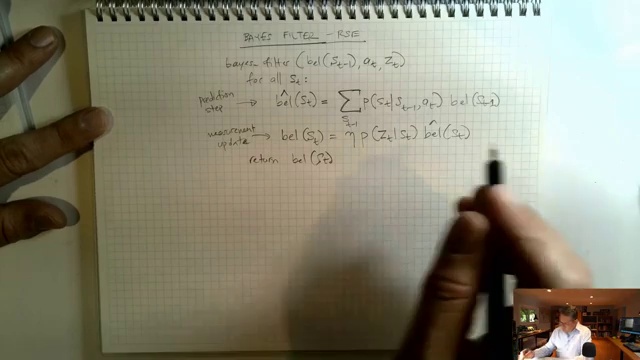 BAYES FILTER - RSE
bayes filter (bel(s_{t-1}), a_t, z_t)
for all s_t:
prediction step → \hat{bel}(s_t) = \sum_{s_{t-1}} p(s_t | s_{t-1}, a_t) bel(s_{t-1})
measurement update → bel(s_t) = η p(z_t | s_t) \hat{bel}(s_t)
return bel(s_t)